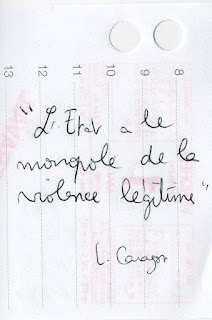 13 12 11 10 9 8
"L'Etat a le
monopole de la
violence légitime"
L.